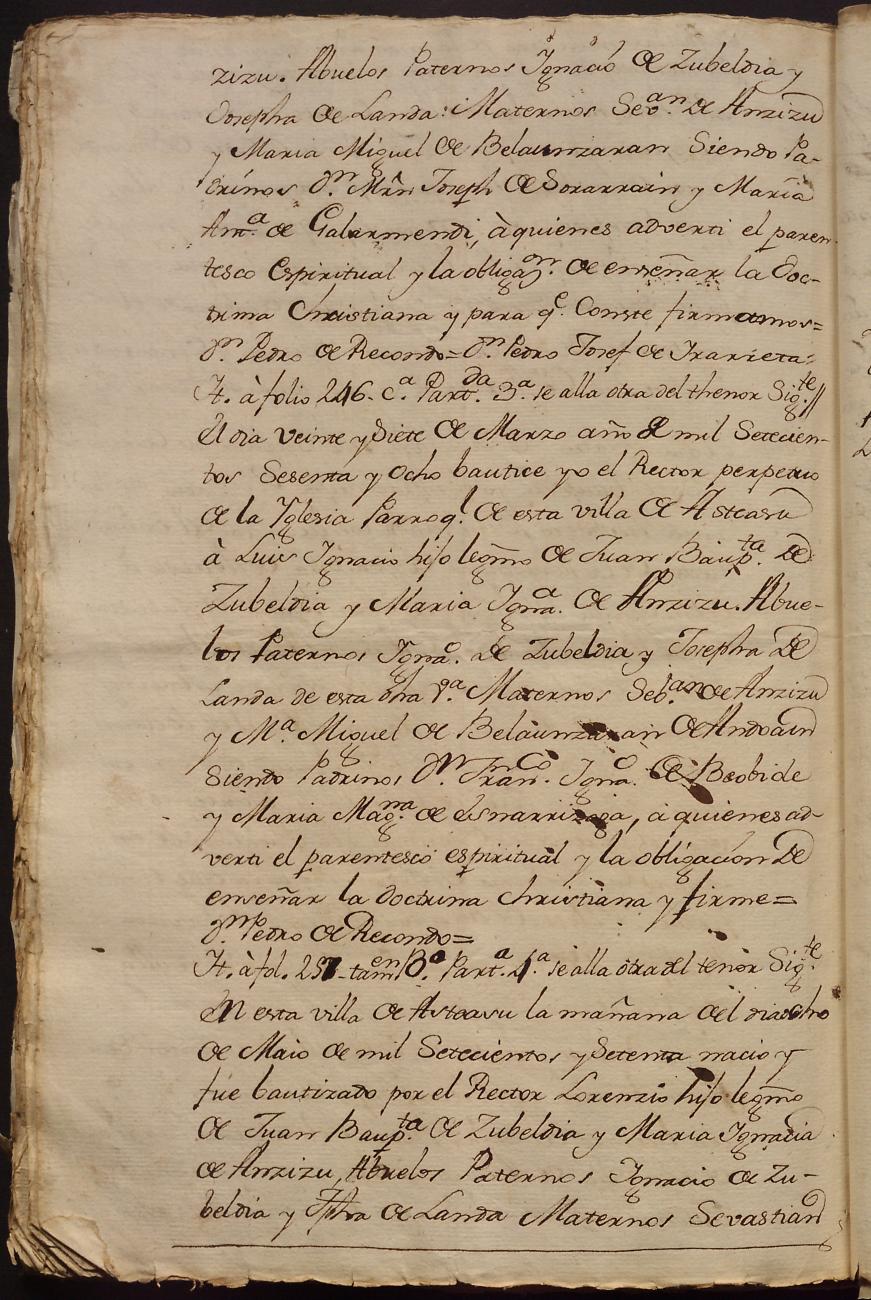 zizu. Abuelos Paternos Ignacio de Zubeldia y
Josepha de Landa: Maternos Sevan. de Anzizu
y Maria Miguel de Belaunzaran Siendo Pa-
drinos Dn. Mrn Joseph de Sorarrain y Maria
Anta. de Galarmendi, à quienes adverti el paren-
tesco Espiritual y la obligaon. de enseñar la Doc-
trina Christiana y para qe. Conste firmamos=
Dn. Pedro de Recondo= Dn. Pedro Josef de Irarreta=
It. à folio 246. Ca. Partda. 3a. se alla otra del thenor Sigte.//
El dia veinte y Siete de Marzo año de mil Setecien-
tos Sesenta y Ocho bautice yo el Rector perpetuo
de la Yglesia Parroql. de esta villa de Asteasu
à Luis Ignacio hijo legmo de Juan Baupta. de
Zubeldia y Maria Igna. de Anzizu. Abue-
los Paternos Ignao. de Zubeldia y Josepha de
Landa de esta dha Va. Maternos Seban. de Anzizu
y Ma. Miguel de Belaunzarain de Andoain
Siendo Padrinos Dn. Franco. Igno. de Beobide
y Maria Magna. de Esnarrizaga, à quienes ad-
verti el parentesco espiritual y la obligacion de
enseñar la doctrina christiana y firme=
Dn. Pedro de Recondo=
It. à fol. 257 tamn Ba. Parta. 4a. se alla otra del tenor Sigte.
En esta villa de Asteasu la mañana del dia ocho
de Maio de mil Setecientos y Setenta nacio y
fue bautizado por el Rector Lorenzio hijo legmo
de Juan Baupta. de Zubeldia y Maria Ignacia
de Anzizu, Abuelos Paternos Ignacio de Zu-
beldia y Jpha de Landa Maternos Sevastian